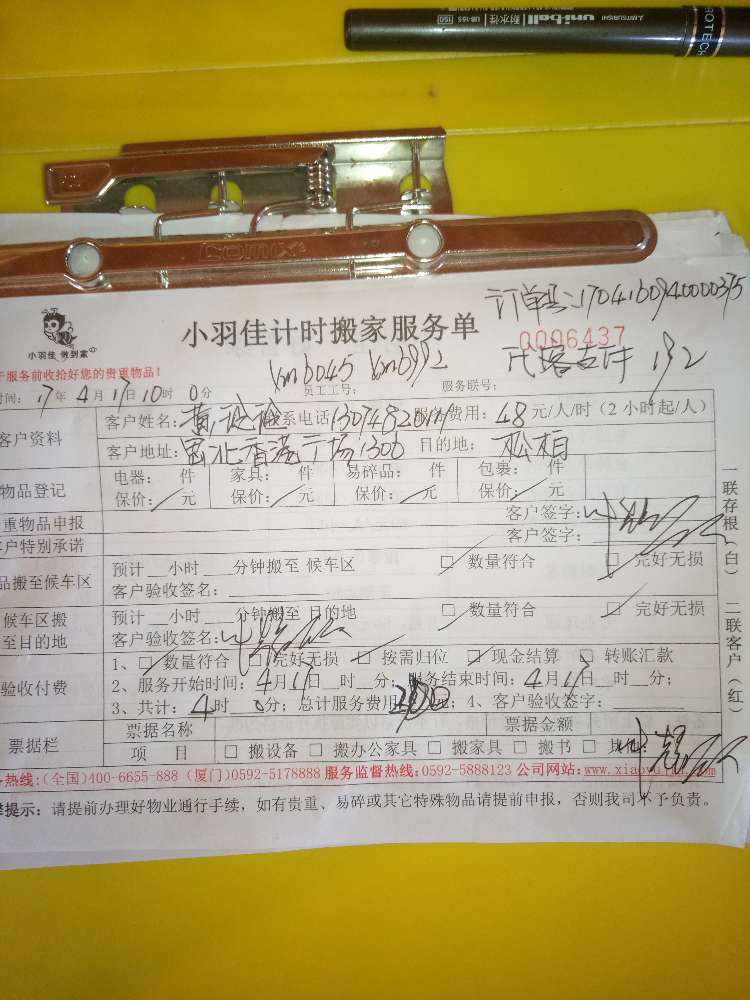 MITSUBISHI uni-ball 耐水性 UB-155 ISO
ROTECH
COMIX
订单号:1704160940000375
小羽佳 做到家
小羽佳计时搬家服务单
0006437
服务前收拾好您的贵重物品!
Xm6045 Xm6992
192
时间: 17年4月17日10时0分
员工工号:
服务联号:
客户资料
客户姓名: 黄
系电话
服务费用: 48 元/人/时 (2小时起/人)
客户地址: 湖北香港广场1306 目的地: 松柏
物品登记
电器: 件 家具: 件 易碎品: 件 包裹: 件
保价: 元 保价: 元 保价: 元 保价: 元
重物品申报
客户签字:
户特别承诺
客户签字:
品搬至候车区
预计__小时____分钟搬至 候车区 □ 数量符合 □ 完好无损
客户验收签名:
候车区搬至目的地
预计__小时____分钟搬至 目的地 □ 数量符合 □ 完好无损
客户验收签名:
验收付费
1、□ 数量符合 □ 完好无损 □ 按需归位 □ 现金结算 □ 转账汇款
2、服务开始时间: 4月17日__时__分; 服务结束时间: 4月17日__时__分;
3、共计: 4时 0分; 总计服务费用 元; 4、客户验收签字:
票据栏
票据名称 票据金额
项 目 □ 搬设备 □ 搬办公家具 □ 搬家具 □ 搬书 □ 其他
热线:(全国)400-6655-888 (厦门)0592-5178888 服务监督热线:0592-5888123 公司网站:www.xiaoyujia.com
提示: 请提前办理好物业通行手续, 如有贵重、易碎或其它特殊物品请提前申报, 否则我司不予负责。
一联存根(白) 二联客户(红)